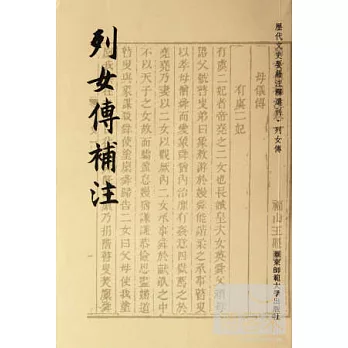 列女傳補注
歷代文史要籍注釋選刊·列女傳
母儀傳
有虞二妃
有虞二妃者帝堯之二女也長娥皇次女英
父頑母嚚父號瞽叟弟曰象敖游於嫚舜能諧柔之承事瞽叟
以孝母憎舜而愛象舜猶內治靡有姦意四嶽薦之於
堯堯乃妻以二女以觀厥內二女承事舜於畎畝之中
不以天子之女故而驕盈怠嫚猶謙謙恭儉思盡婦道
瞽叟與象謀殺舜使塗廩舜歸告二女曰父母使我塗
華東師範大學出版社